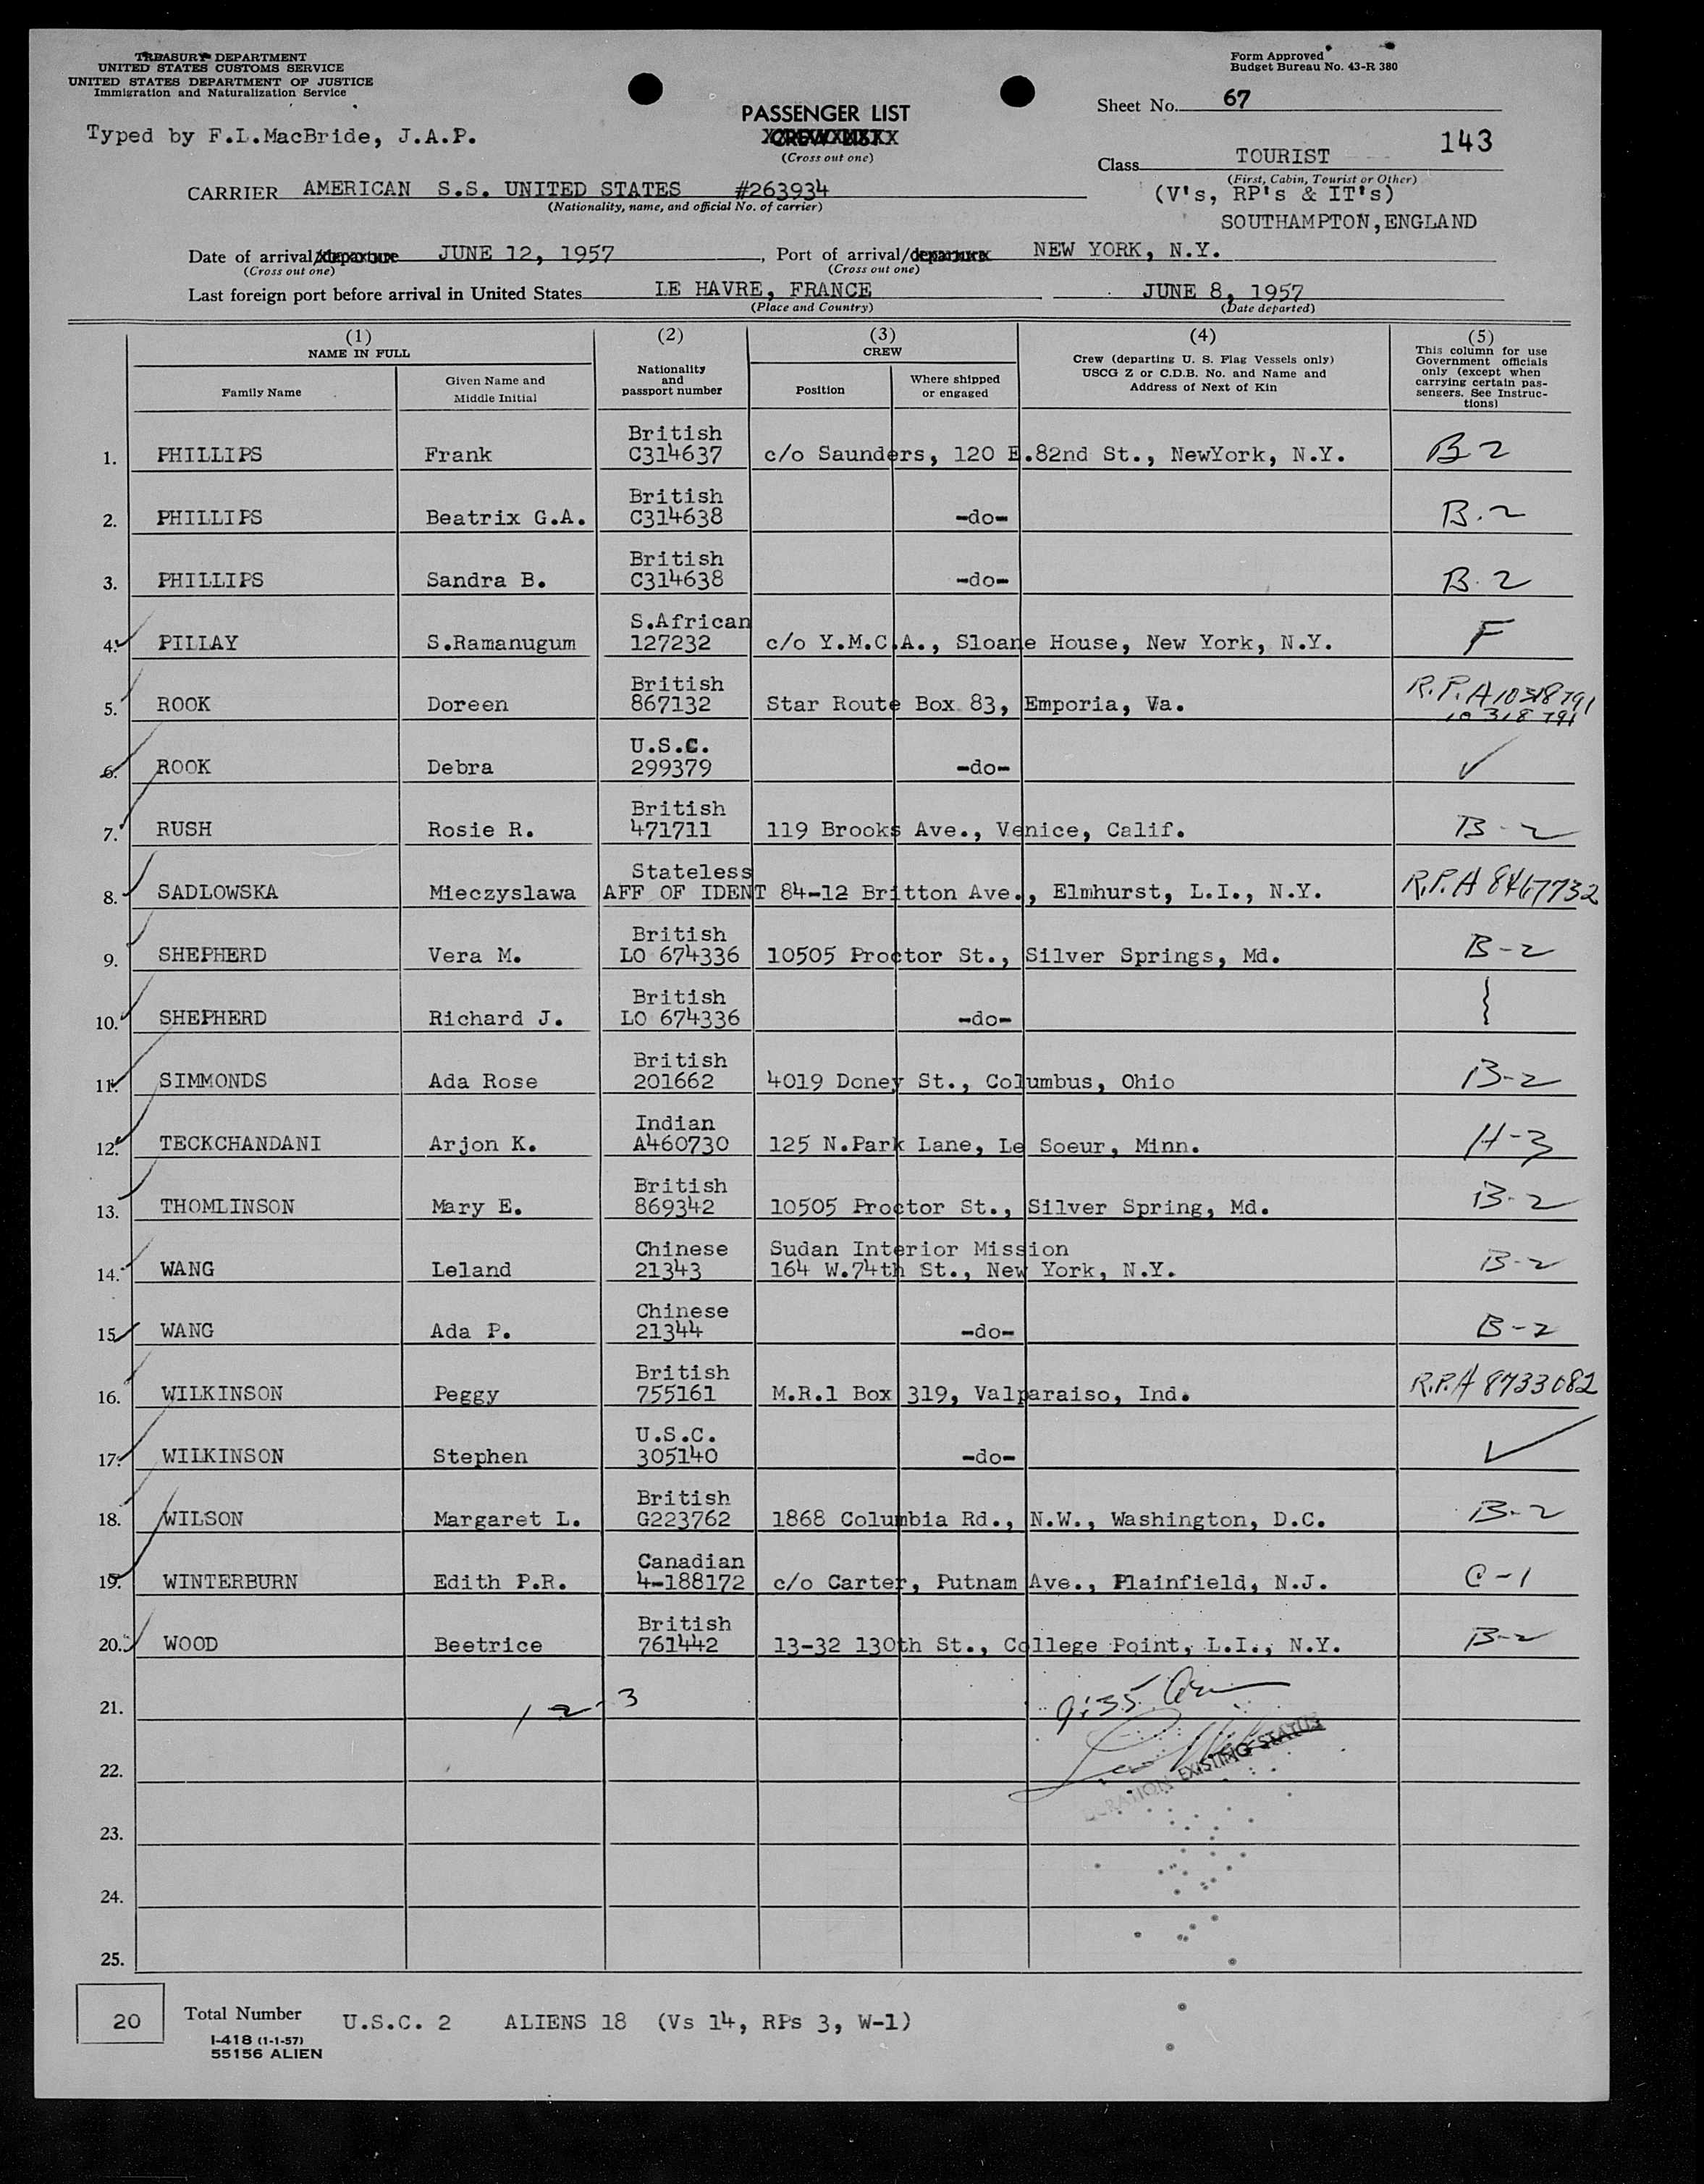 TREASURY DEPARTMENT
UNITED STATES CUSTOMS SERVICE
UNITED STATES DEPARTMENT OF JUSTICE
Immigration and Naturalization Service
Form Approved
Budget Bureau No. 43-R 380
Sheet No. 67
PASSENGER LIST
CREW LIST
(Cross out one)
Typed by F.L.MacBride, J.A.P.
143
Class TOURIST
(First, Cabin, Tourist or Other)
CARRIER AMERICAN S.S. UNITED STATES #263934
(Nationality, name, and official No. of carrier)
(V's, RP's & IT's)
SOUTHAMPTON,ENGLAND
Date of arrival/departure JUNE 12, 1957, Port of arrival/departure NEW YORK, N.Y.
(Cross out one) (Cross out one)
Last foreign port before arrival in United States LE HAVRE, FRANCE JUNE 8, 1957
(Place and Country) (Date departed)
(1) NAME IN FULL
Family Name
Given Name and Middle Initial
(2) Nationality and passport number
(3) CREW
Position
Where shipped or engaged
(4) Crew (departing U. S. Flag Vessels only) USCG Z or C.D.B. No. and Name and Address of Next of Kin
(5) This column for use Government officials only (except when carrying certain passengers. See Instructions)
1. PHILLIPS Frank British C314637 c/o Saunders, 120 E.82nd St., NewYork, N.Y. B2
2. PHILLIPS Beatrix G.A. British C314638 -do- B.2
3. PHILLIPS Sandra B. British C314638 -do- B.2
4. PILLAY S.Ramanugum S.African 127232 c/o Y.M.C.A., Sloane House, New York, N.Y. F
5. ROOK Doreen British 867132 Star Route Box 83, Emporia, Va. R.P. A10318791
10 318 791
6. ROOK Debra U.S.C. 299379 -do- ✓
7. RUSH Rosie R. British 471711 119 Brooks Ave., Venice, Calif. B-2
8. SADLOWSKA Mieczyslawa Stateless AFF OF IDENT 84-12 Britton Ave., Elmhurst, L.I., N.Y. R.P. A 8467732
9. SHEPHERD Vera M. British LO 674336 10505 Proctor St., Silver Springs, Md. B-2
10. SHEPHERD Richard J. British LO 674336 -do-
11. SIMMONDS Ada Rose British 201662 4019 Doney St., Columbus, Ohio B-2
12. TECKCHANDANI Arjon K. Indian A460730 125 N.Park Lane, Le Soeur, Minn. H-3
13. THOMLINSON Mary E. British 869342 10505 Proctor St., Silver Spring, Md. B-2
14. WANG Leland Chinese 21343 Sudan Interior Mission 164 W.74th St., New York, N.Y. B-2
15. WANG Ada P. Chinese 21344 -do- B-2
16. WILKINSON Peggy British 755161 M.R.1 Box 319, Valparaiso, Ind. R.P. A 8733082
17. WILKINSON Stephen U.S.C. 305140 -do- ✓
18. WILSON Margaret L. British G223762 1868 Columbia Rd., N.W., Washington, D.C. B-2
19. WINTERBURN Edith P.R. Canadian 4-188172 c/o Carter, Putnam Ave., Plainfield, N.J. C-1
20. WOOD Beetrice British 761442 13-32 130th St., College Point, L.I., N.Y. B-2
21. 1-2-3 9:35 am
22. EXISTING STATUS
23.
24.
25.
20 Total Number U.S.C. 2 ALIENS 18 (Vs 14, RPs 3, W-1)
I-418 (1-1-57)
55156 ALIEN